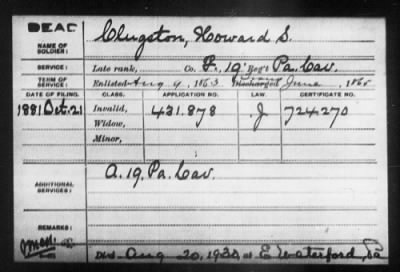 DEAD
NAME OF SOLDIER: Clugston, Howard S.
SERVICE: Late rank, Co. F, 19 Reg't Pa. Cav.
TERM OF SERVICE: Enlisted Aug 9, 1863 Discharged June, 1865
DATE OF FILING. CLASS. APPLICATION NO. LAW. CERTIFICATE NO.
1881 Oct. 21 Invalid, 431.878 J 724.270
Widow,
Minor,
ADDITIONAL SERVICES: A. 19. Pa. Cav.
REMARKS:
Died Aug 20, 1930, at E. Waterford, Pa